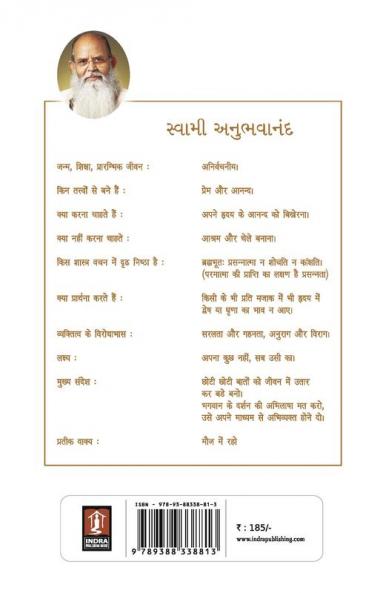 સ્વામી અનુભવાનંદ
जन्म, शिक्षा, प्रारम्भिक जीवन : अनिर्वचनीय।
किन तत्त्वों से बने हैं : प्रेम और आनन्द।
क्या करना चाहते हैं : अपने हृदय के आनन्द को बिखेरना।
क्या नहीं करना चाहते : आश्रम और चेले बनाना।
किस शास्त्र वचन में दृढ निष्ठा है : ब्रह्मभूतः प्रसन्नात्मा न शोचति न कांक्षति।
(परमात्मा की प्राप्ति का लक्षण है प्रसन्नता)
क्या प्रार्थना करते हैं : किसी के भी प्रति मजाक में भी हृदय में
द्वेष या घृणा का भाव न आए।
व्यक्तित्व के विरोधाभास : सरलता और गहनता, अनुराग और विराग।
लक्ष्य : अपना कुछ नहीं, सब उसी का।
मुख्य संदेश : छोटी छोटी बातों को जीवन में उतार
कर बडे बनो।
भगवान के दर्शन की अभिलाषा मत करो,
उसे अपने माध्यम से अभिव्यक्त होने दो।
प्रतीक वाक्य : मौज में रहो
ISBN - 978-93-88338-81-3
9789388338813
INDRA
PUBLISHING HOUSE
₹ : 185/-
www.indrapublishing.com